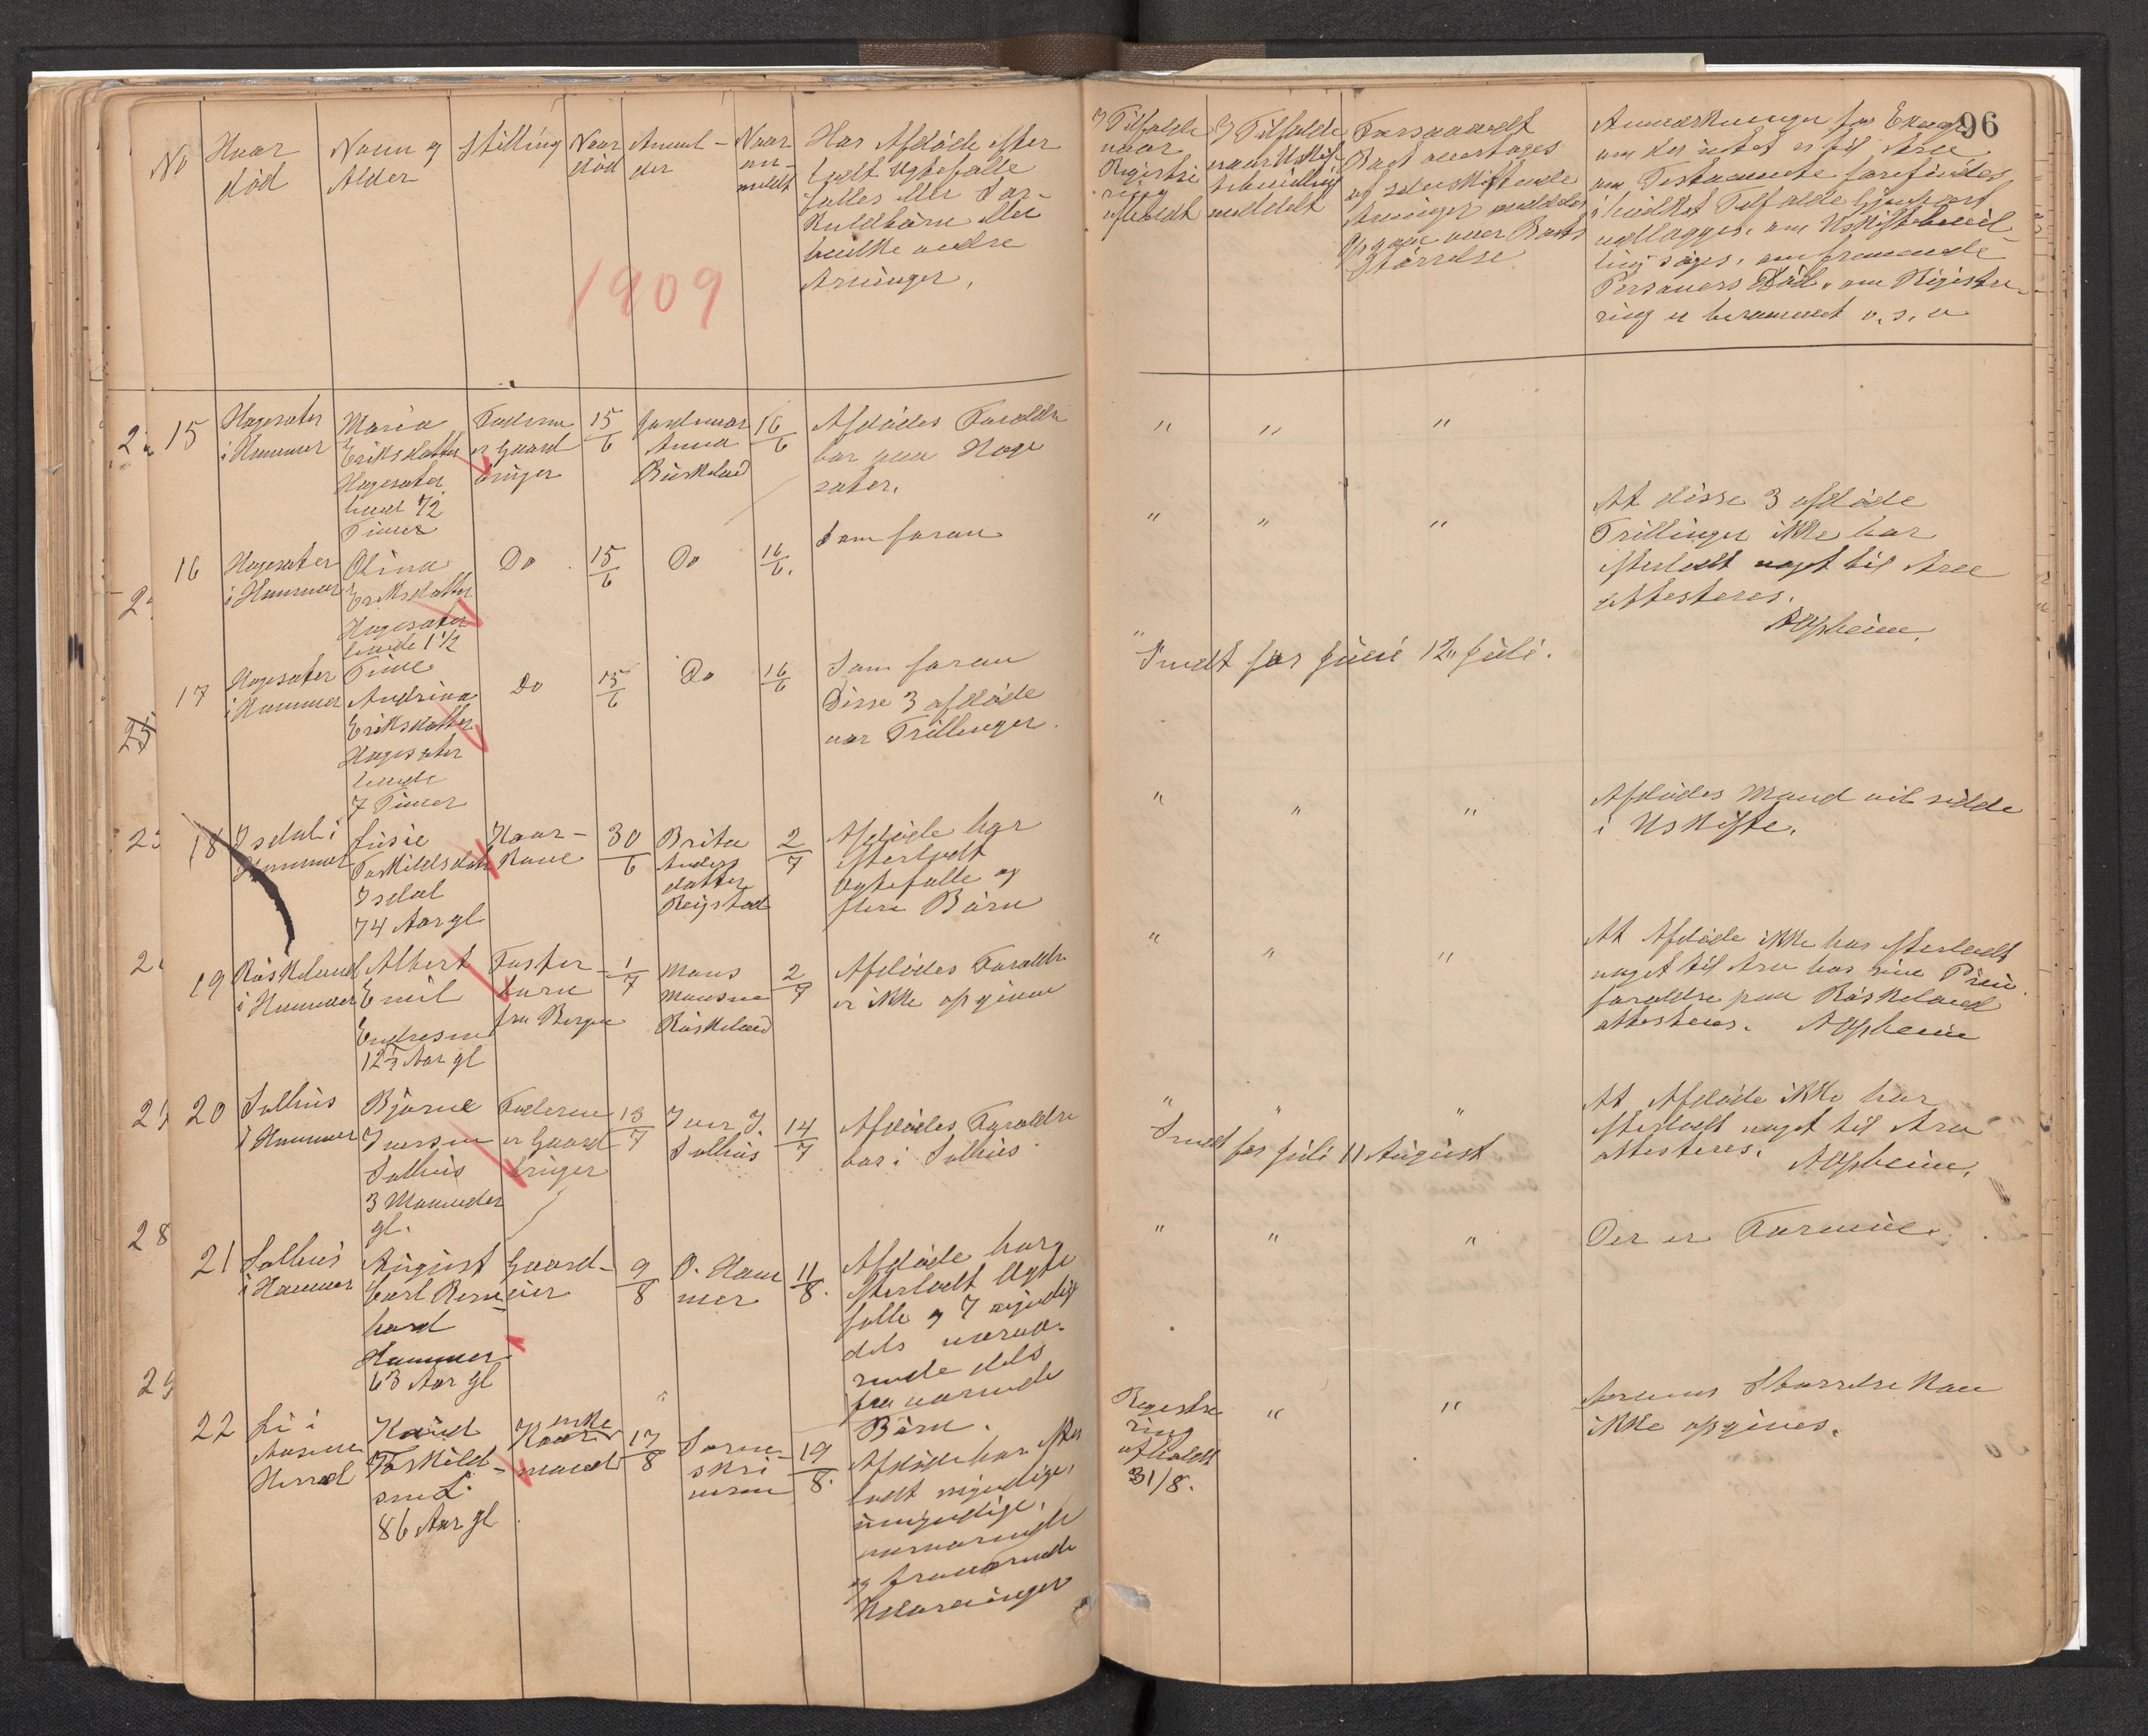 No
Hvor
død
Navn og
Alder
Stilling
Naar
død
Anmel-
der
Naar
an-
meldt
Har Afdøde efter
ladt Ægtefælle
fælles eller Sær-
kuldbørn eller
hvilke andre
Arvinger.
1909
I Tilfælde
naar
Registre
ring
afholdt
I Tilfælde
naar Uskif-
tebevilling
meddelt
Forsaavidt
Boet overtages
af selvskiftende
Arvinger meddeles
Opgave over Boets
Størrelse
96
Anmærkninger for Exempel
om der intet er til Arv
om Testamente forefindes
i hvilket Tilfælde Gjenpart
vedlægges, om Uskiftebevil-
ling søges, om fremmede
Personers Død, om Registre-
ring er berammet o. s. v
15
Hagesæter
i Hammer
Maria
Eriksdatter
Hagesæter
levede 1/2
Time
Faderen
er Gaard
bruger
15/6
Jordemor
Anna
Birkeland
16/6
Afdødes Forældre
bor paa Hage
sæter.
" " "
16
Hagesæter
i Hammer
Olina
Eriksdatter
Hagesæter
levede 1 1/2
Time
Do
15/6
Do
16/6.
Som foran
" " "
At disse 3 afdøde
Trillinger ikke har
efterladt noget til Arv
attesteres.
AOpheim.
17
Hagesæter
i Hammer
Andrina
Eriksdatter
Hagesæter
levede
7 Timer
Do
15/6
Do
16/6
Som foran
Disse 3 afdøde
var Trillinger.
"
Sendt for Juni 12 Juli.
18
Isdal i
Hammer
Torkildsdatter
Isdal
74 Aar gl
Kaar-
Kone
30/6
Brita
Anders
datter
Reigstad
2/7
Afdøde har
efterladt
Ægtefælle og
flere Børn
" " "
Afdødes Mand vil sidde
i Uskifte.
19
Røskeland
i Hammer
Albert
Emil
Endresen
Aar gl
Foster-
barn
fra Bergen
1/7
Mons
Monsen
Røskeland
2/7
Afdødes Forældre
er ikke opgivne
" " "
At Afdøde ikke har efterladt
noget til Arv hos sine Pleie
forældre paa Røskeland
attesteres. AOpheim
20
Salhus
i Hammer
Bjarne
Iversen
Salhus
3 Maaneder
gl.
Faderen
er Gaard
bruger
13/7
Iver J.
Salhus
14/7
Afdødes Forældre
bor i Salhus
" " "
Sendt for Juli 11 August
At Afdøde ikke har
efterladt noget til Arv
attesteres. AOpheim.
21
Salhus
i Hammer
August
Carl Bern
hard
Hammer
63 Aar gl
Gaard-
eier
9/8
O. Ham
mer
11/8.
Afdøde har
efterladt Ægte
fælle og 7 myndige
dels nærvæ-
rende dels
fraværende
Børn.
" " "
Der er Formue.
22
Li i
Aasene
Herred
Torkild-
sen Li
86 Aar gl
enke
Kaar
mand
17/8
19/8.
Afdøde har efter
ladt myndige,
umyndige,
nærværende
og fraværende
Udarvinger
Registre
ring
afholdt
31/8.
" "
Arvens Størrelse kan
ikke opgives.
28